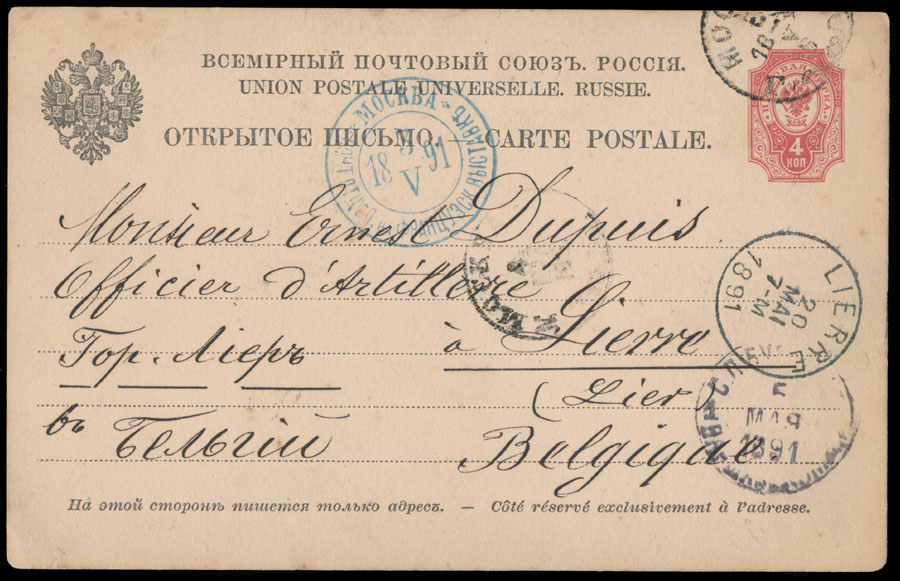 ВСЕМІРНЫЙ ПОЧТОВЫЙ СОЮЗЪ. РОССІЯ.
UNION POSTALE UNIVERSELLE. RUSSIE.
ОТКРЫТОЕ ПИСЬМО. — CARTE POSTALE.
4
КОП
МОСКВА
ФРАНЦУЗСК ВЫСТАВКѢ
3
18 91
V
Monsieur Ernest Dupuis
Officier d'Artillerie
Гор. Лieръ
à Lierre
(Lier)
въ Бельгiи
Belgique
LIERRE
20
MAI
7-M
1891
5
МАЯ
1891
На этой сторонѣ пишется только адресъ. — Côté réservé exclusivement à l'adresse.